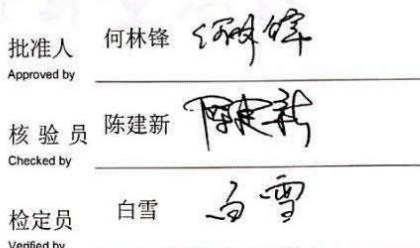 批准人 何林锋 何林锋
Approved by
核验员 陈建新 陈建新
Checked by
检定员 白雪 白雪
Verified by